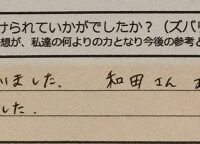 けられていかがでしたか？（ズバリ
想が、私達の何よりの力となり今後の参考と
いました. 和田さん
した.